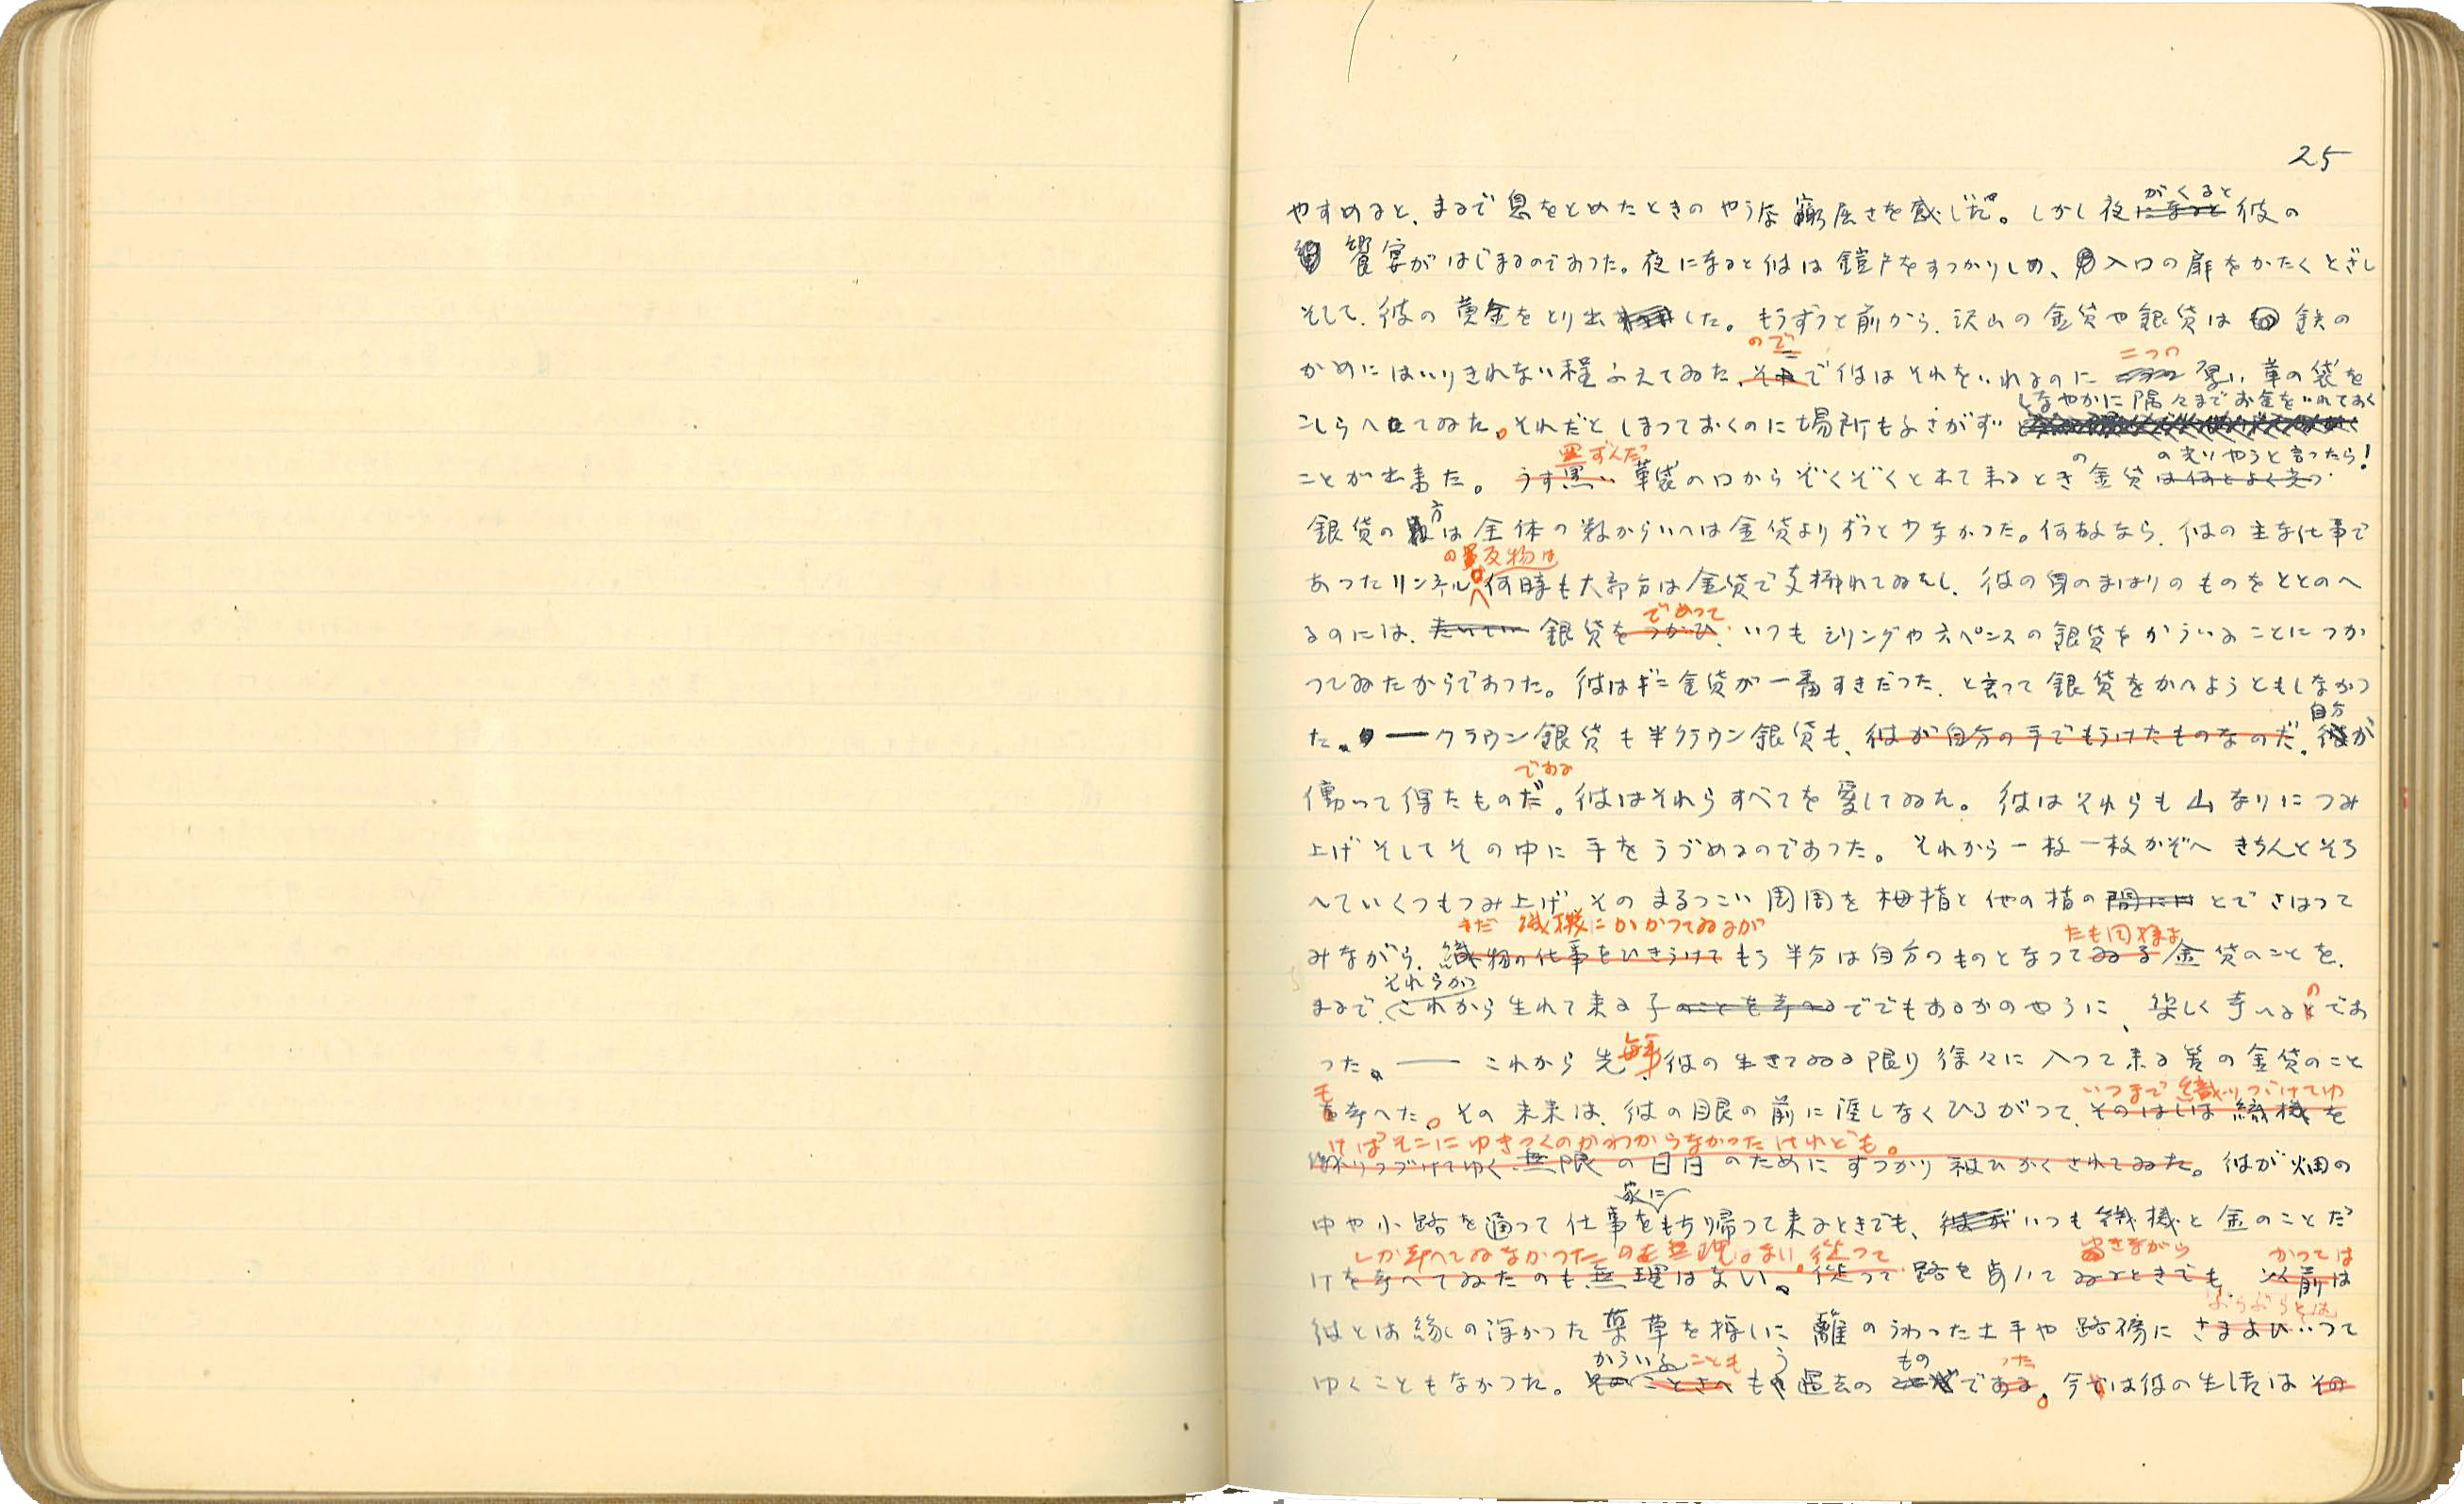 25
がくると
やすめると、まるで息をとめたときのやうな窮屈さを感じた。しかし夜になると彼の
饗宴がはじまるのであつた。夜になると彼は鎧戸をすつかりしめ、入口の扉をかたくとざし
そして、彼の黄金をとり出した。もうずつと前から、沢山の金貨や銀貨は鉄の
ので 二つの
かめにはいりきれない程ふえてゐた、それで彼はそれをいれるのに 厚い革の袋を
しなやかに隅々までお金をいれておく
こしらへてゐた。それだとしまつておくのに場所もふさがず
黒ずんだ の の光りやうと言つたら!
ことが出来た。うす黒い革袋の口からぞくぞくと出て来るとき金貨は何とよく光つ
方
銀貨のは全体の数からいへば金貨よりずつと少なかつた。何故なら、彼の主な仕事で
の反物は
あつたリンネル何時も大部分は金貨で支拂れてゐたし、彼の身のまはりのものをととのへ
であつて
るのには、たいてい銀貨をつかひ、いつもシリングや六ペンスの銀貨をかういふことにつか
つてゐたからであつた。彼はギニ金貨が一番すきだつた、と言つて銀貨をかへようともしなかつ
自分
た。――クラウン銀貨も半クラウン銀貨も、彼が自分の手でもうけたものなのだ。彼が
である
働いて得たものだ。彼はそれらすべてを愛してゐた。彼はそれらも山なりにつみ
上げそしてその中に手をうづめるのであつた。それから一枚一枚かぞへきちんとそろ
へていくつもつみ上げ、そのまるつこい周囲を拇指と他の指の間にはとでさはつて
まだ織機にかかつてゐるが たも同様な
みながら、織物の仕事をひきうけてもう半分は自分のものとなつてゐる金貨のことを、
それらがつ
まるで、これから生れて来る子のことを考へるででもあるかのやうに、楽しく考へるとであ
の
毎年
つた。――これから先彼の生きてゐる限り徐々に入つて来る筈の金貨のこと
も いつまで織りつづけてゆ
を考へた。その未来は、彼の眼の前に涯しなくひろがつて、そのはしは織機を
けばそこにゆきつくのかわからなかつたけれども。
織りつづけてゆく無限の日日のためにすつかり被ひかくされてゐた。彼が畑の
家に
中や小路を通つて仕事をもち帰つて来るときでも、彼がいつも織機と金のことだ
しか考へてゐなかつたのも無理はない。従つて 歩きながら かつては
けを考へてゐたのも無理はない。従つて路を歩いてゐるときでも、以前は
ぶらぶらとは
彼とは縁の深かつた薬草を探しに離のうわつた土手や路傍にさまよひいつて
かういふことも う もの つた
ゆくこともなかつた。そのことさへもや過去のである。今では彼の生活はその